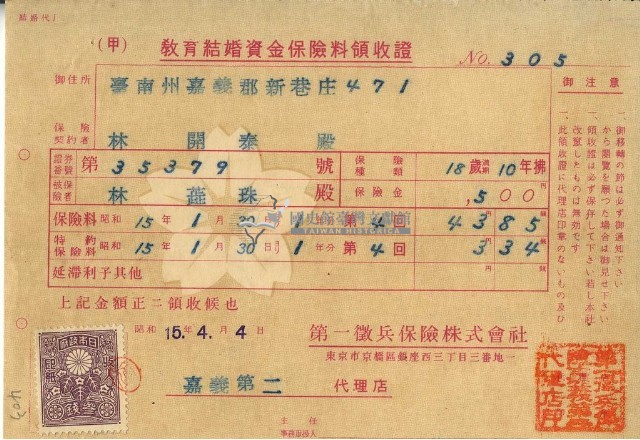 (甲) 教育結婚資金保險料領收證
No. 305
御住所 臺南州嘉義郡新巷庄471
保險契約者 林開泰殿
證券番號 第35379號 保險種類 18歲滿期10年拂
被保險者 林蓮珠殿 保險金 ,500
保險料 昭和15年1月30日 第4回 4385
特約保險料 昭和15年1月30日ヨリ1年分 第4回 334
延滯利子其他
上記金額正ニ領收候也
昭和15.4.月4日
第一徵兵保險株式會社
東京市京橋區銀座西三丁目三番地一
嘉義第二 代理店
主任
事務取扱人
御注意
一、御移轉の節は必ず御通知下さい
一、領收證は必ず保存して下さい若し本社から閲覽を願つた場合は御見せ下さい
一、此領收證に代理店印章のないもの及び改竄したものは無效です
國史館臺灣文獻館
TAIWAN HISTORICA
403